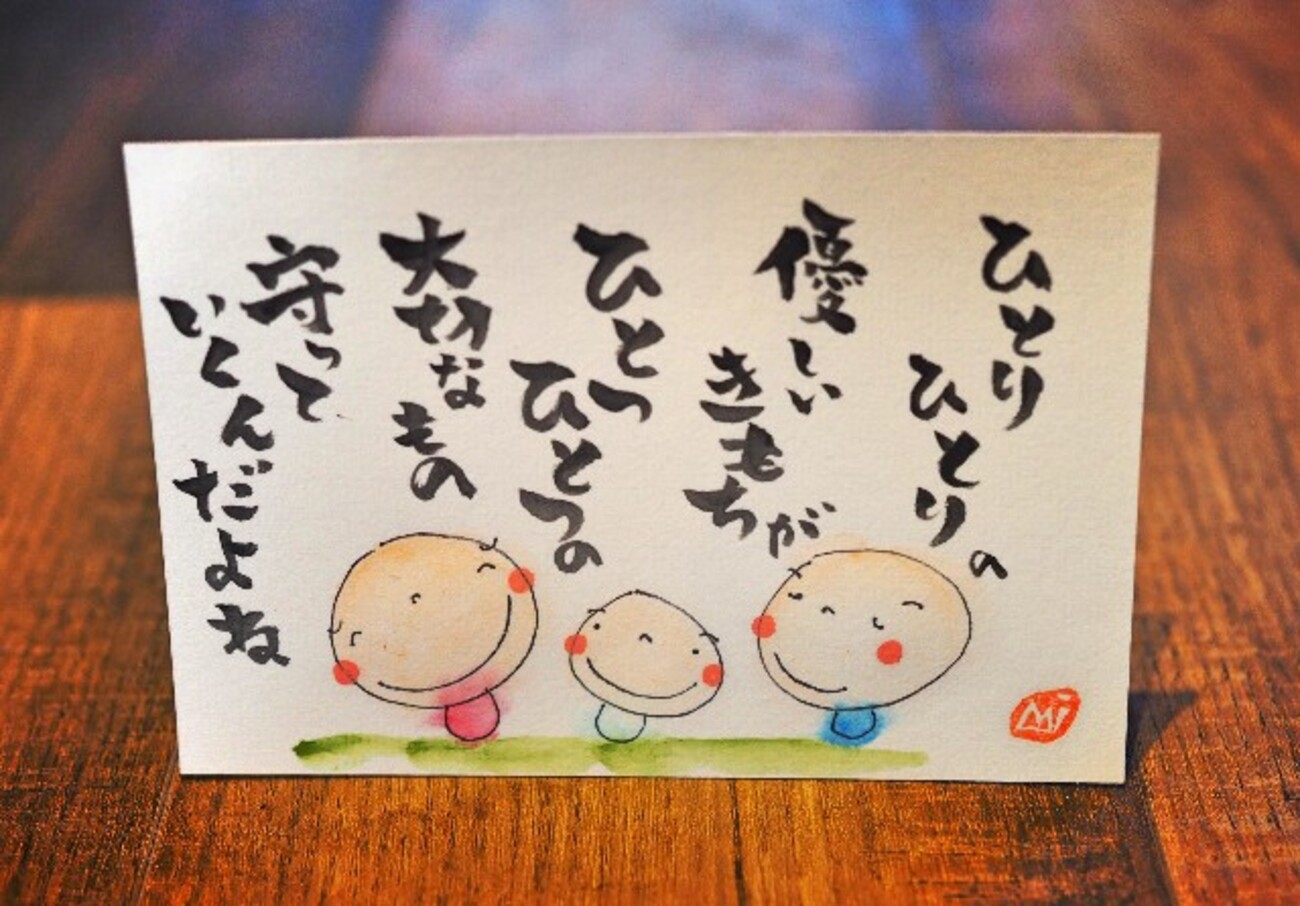 ひとり
ひとりの
優しい
きもちが
ひとつ
ひとつの
大切な
もの
守って
いくんだよね
Mi